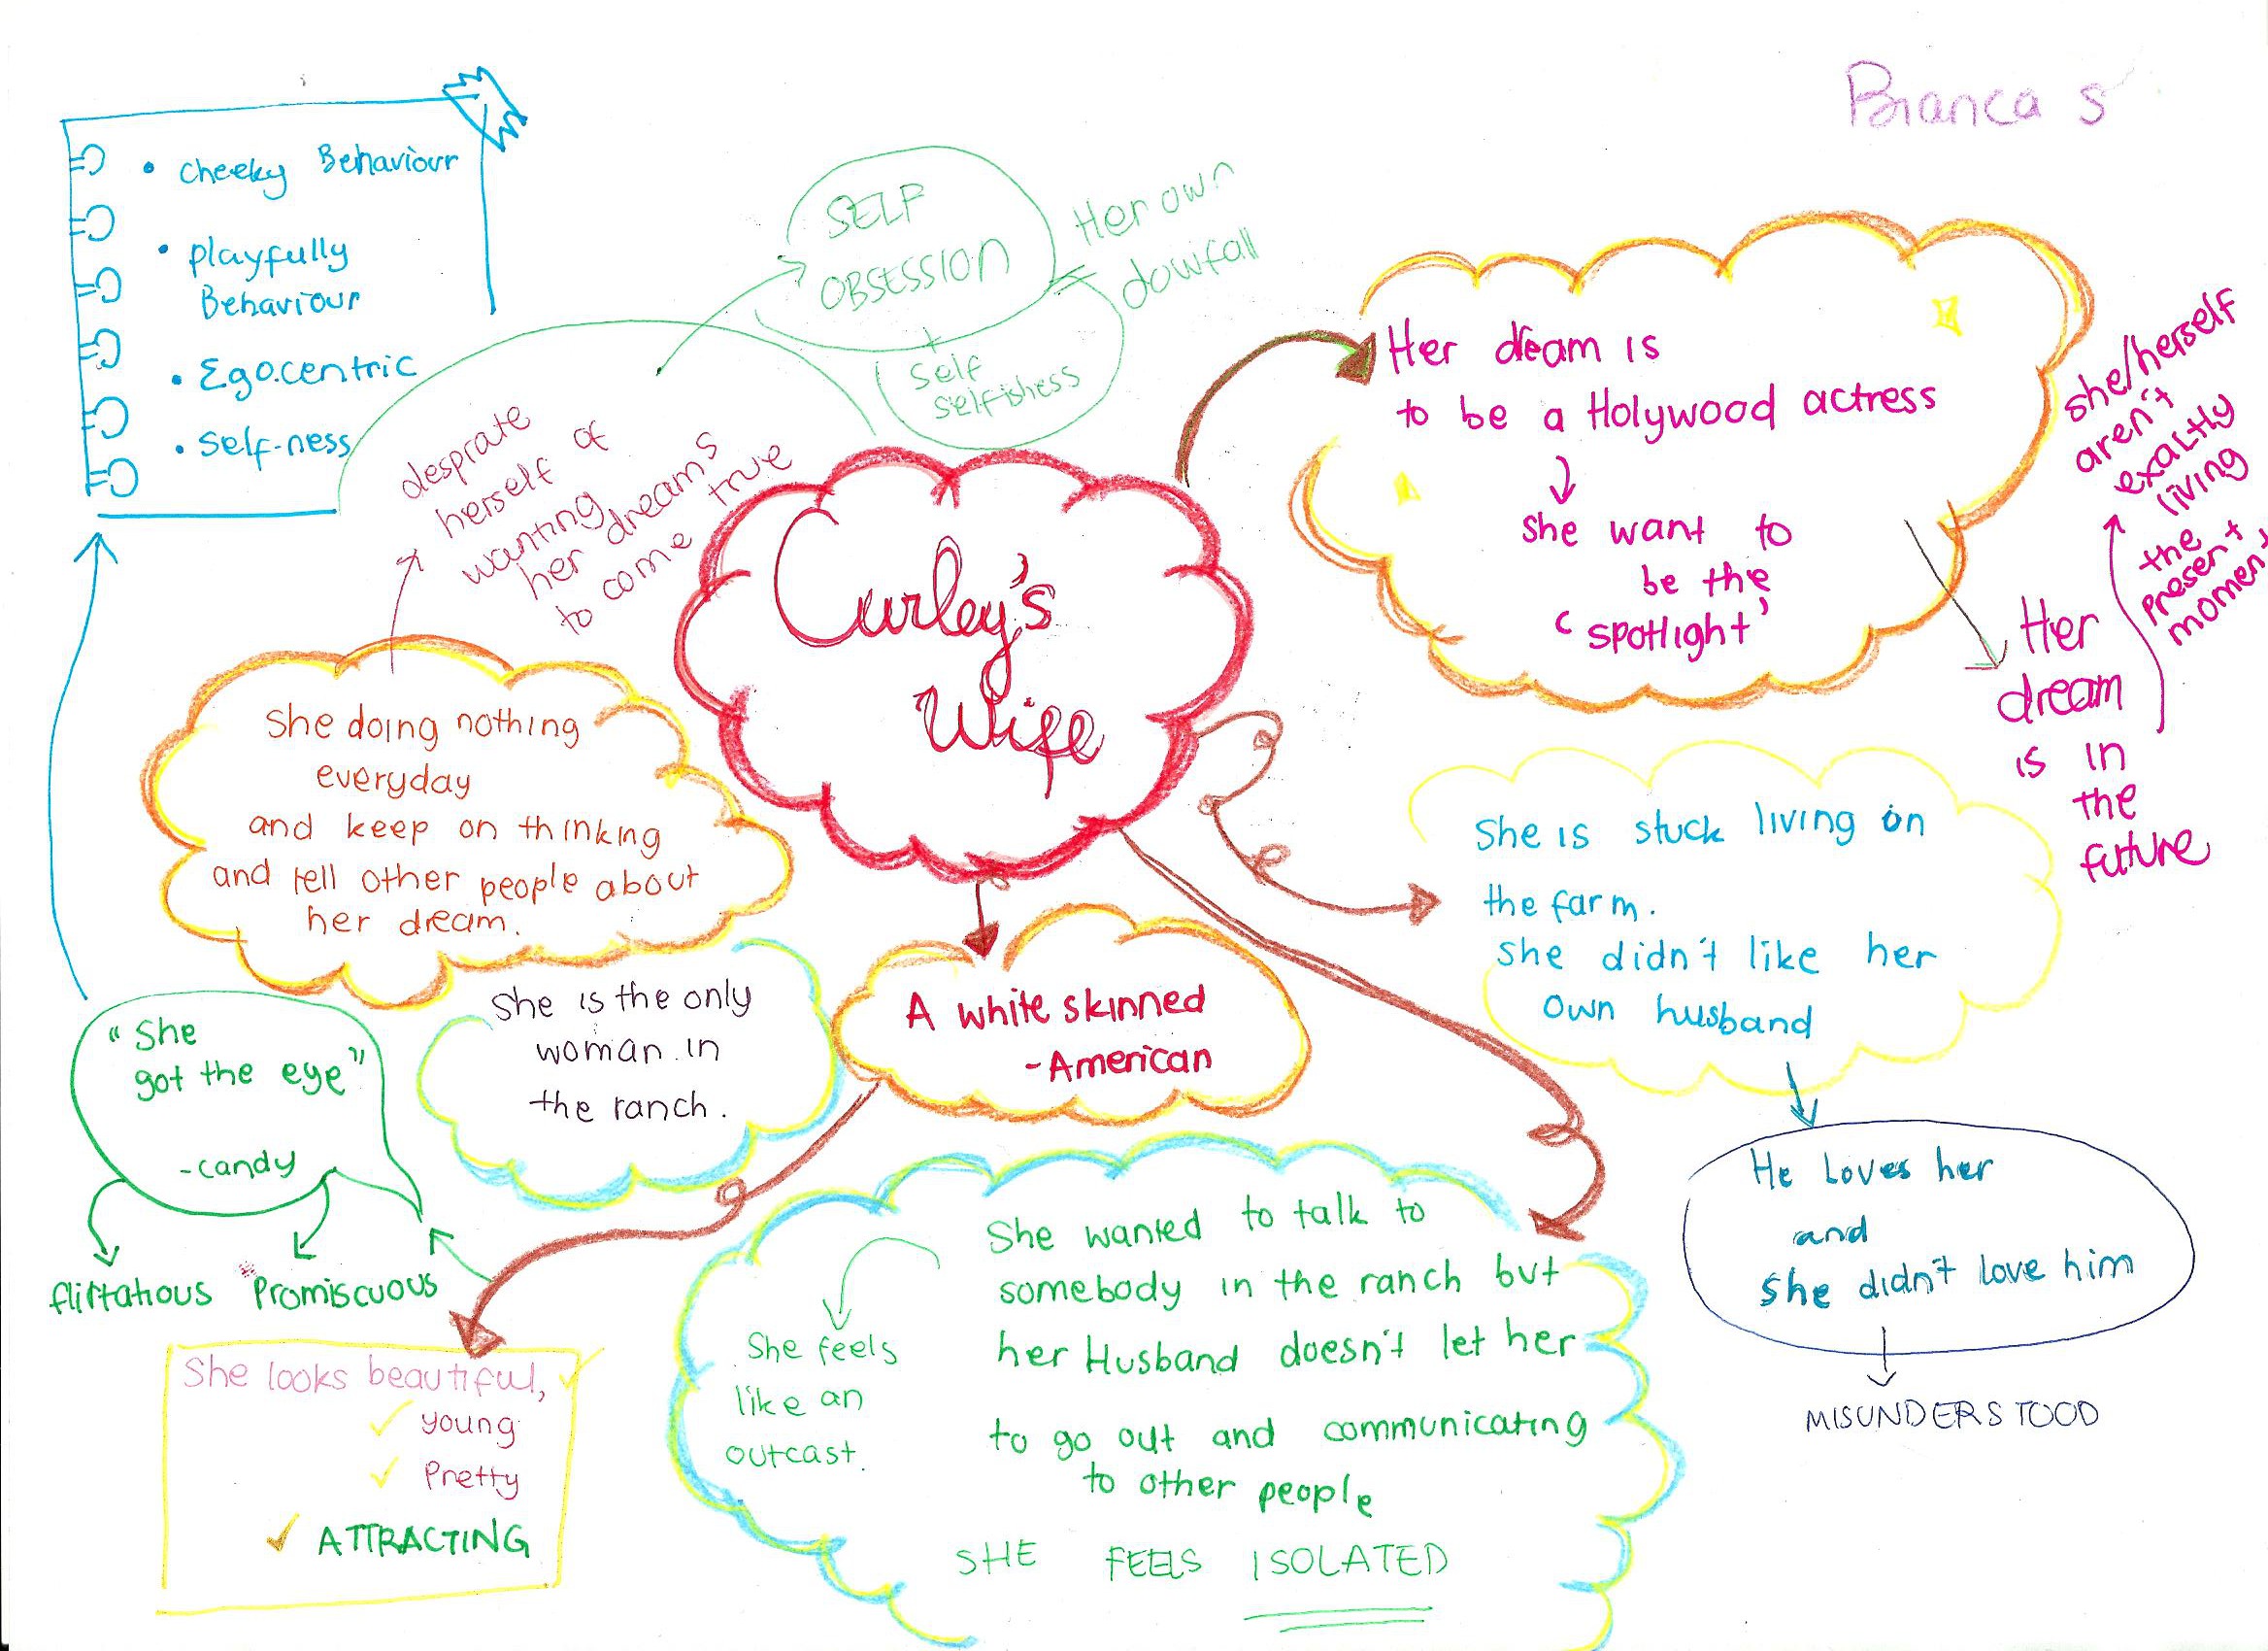 Bianca S
• cheeky Behaviour
• playfully
Behaviour
• Egocentric
• Self-ness
SELF
OBSESSION
+
Self
selfishess
Her own
dowfall
desprate
herself of
wanting
her dreams
to come true
Curley's
Wife
Her dream is
to be a Holywood actress
she want to
be the
'spotlight'
Her
dream
is in
the
future
she/herself
aren't
exaltly
living
the
present
moment
She doing nothing
everyday
and keep on thinking
and tell other people about
her dream.
She is stuck living on
the farm.
She didn't like her
own husband
He Loves her
and
She didn't love him
MISUNDERSTOOD
"She
got the eye"
-candy
flirtatious
Promiscuous
She is the only
woman in
the ranch.
A white skinned
-American
She looks beautiful,
young
Pretty
ATTRACTING
She wanted to talk to
somebody in the ranch but
her Husband doesn't let her
to go out and communicating
to other people
She feels
like an
outcast.
SHE FEELS ISOLATED